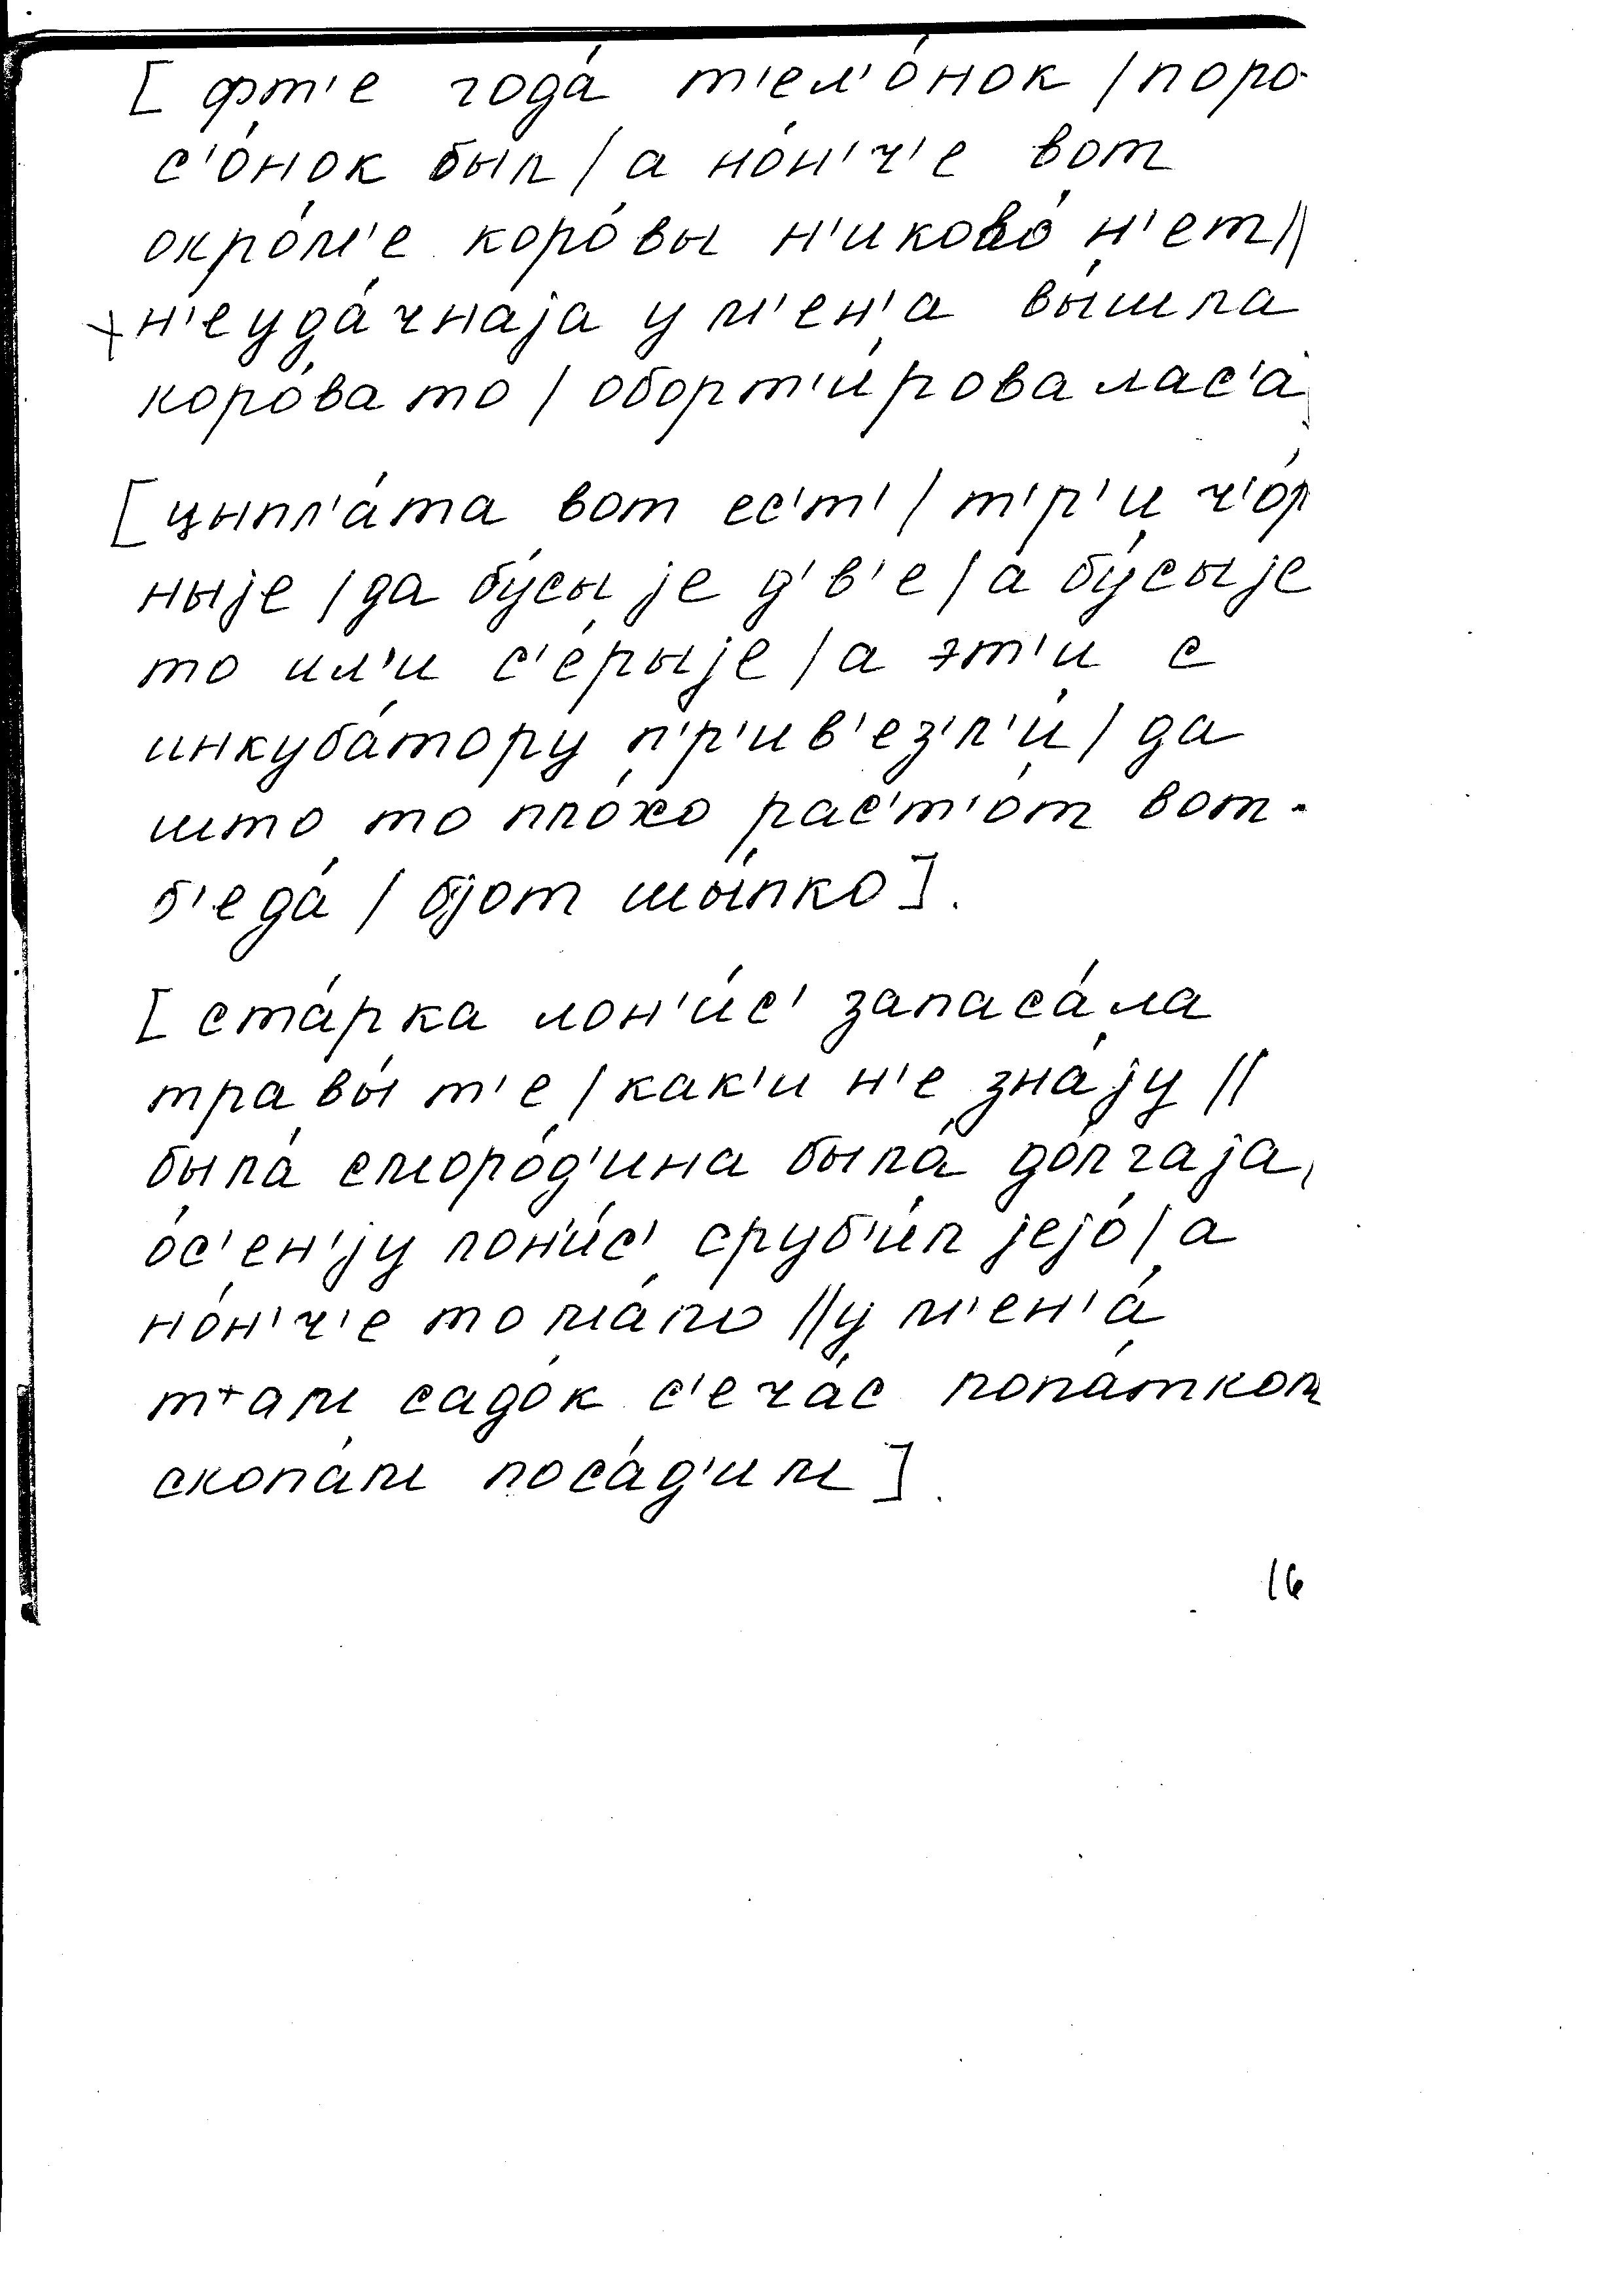 [ фт'е года́ т'ел'о́нок / поро-
с'о́нок был / а но́н'ч'е вот
окро́м'е коро́вы н'иково́ н'ет //
+ н'еуда́чнаjа у м'ен'а вы́шла
коро́ва то / оборт'и́ровалас'а
[ цыпл'а́та вот ес'т' / т'р'и ч'о́р
ныjе / да бу́сыjе д'в'е / а бу́сыjе
то ил'и с'е́рыjе / а эт'и с
инкуба́тору п'р'ив'ез'л'и́ / да
што то пло́хо рас'т'о́т вот -
б'еда́ / бjот шы́пко ].
[ ста́рка лон'и́с' запаса́ла
травы́ т'е / как'и н'е зна́jу //
была́ сморо́д'ина была́ до́лгаjа,
о́с'ен'jу лон'и́с' сруб'и́л jеjо́ / а
но́н'ч'е то ма́ло // у м'ен'а́
т+ам садо́к с'еча́с лопа́тком
скопа́м поса́д'им ].
16